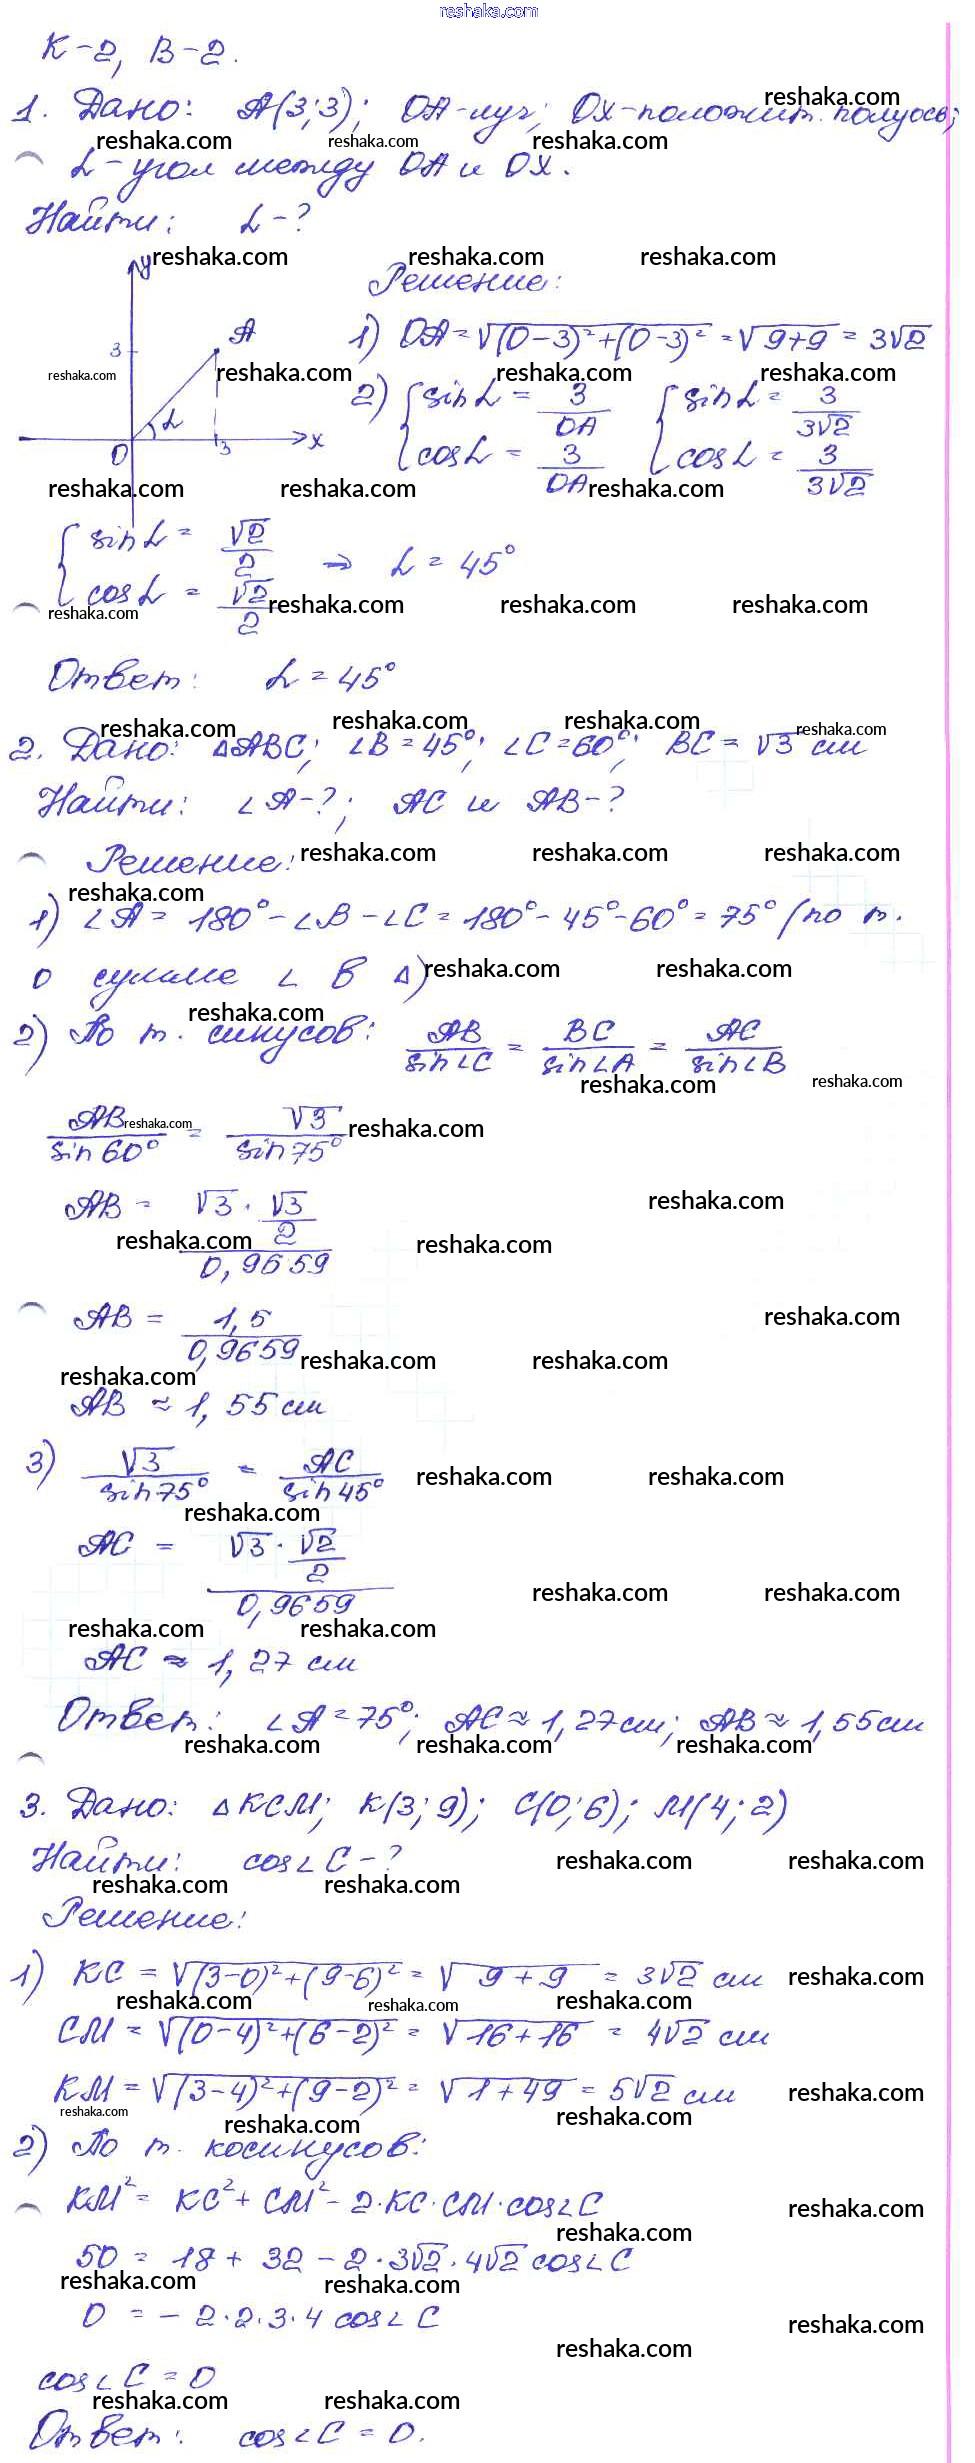 reshaka.com
К-2, В-2.
1. Дано: A(3;3); OA-луч; Ox-положит. полуось;
α-угол между OA и OX.
Найти: α-?
Решение:
y
A
3
α
O
3
x
1) OA = √(0-3)²+(0-3)² = √9+9 = 3√2
2) { sin α = 3/OA { sin α = 3/3√2
cos α = 3/OA cos α = 3/3√2
{ sin α = √2/2
cos α = √2/2 ⇒ α = 45°
Ответ: α = 45°
2. Дано: △ABC; ∠B = 45°; ∠C = 60°; BC = √3 см
Найти: ∠A-?; AC и AB-?
Решение:
1) ∠A = 180° - ∠B - ∠C = 180° - 45° - 60° = 75° (по т.
о сумме ∠ в △)
2) По т. синусов: AB/sin∠C = BC/sin∠A = AC/sin∠B
AB/sin60° = √3/sin75°
AB = √3 · √3/2 / 0,9659
AB = 1,5/0,9659
AB ≈ 1,55 см
3) √3/sin75° = AC/sin45°
AC = √3 · √2/2 / 0,9659
AC ≈ 1,27 см
Ответ: ∠A = 75°; AC ≈ 1,27 см; AB ≈ 1,55 см
3. Дано: △KCM; K(3;9); C(0;6); M(4;2)
Найти: cos∠C-?
Решение:
1) KC = √(3-0)²+(9-6)² = √9+9 = 3√2 см
CM = √(0-4)²+(6-2)² = √16+16 = 4√2 см
KM = √(3-4)²+(9-2)² = √1+49 = 5√2 см
2) По т. косинусов:
KM² = KC² + CM² - 2·KC·CM·cos∠C
50 = 18 + 32 - 2·3√2·4√2 cos∠C
0 = -2·2·3·4 cos∠C
cos∠C = 0
Ответ: cos∠C = 0.